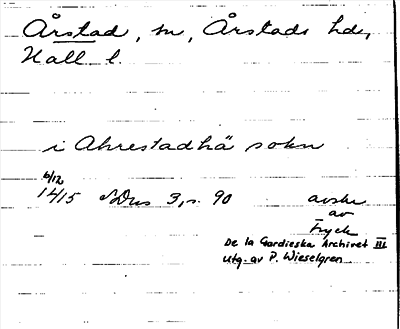 Årstad, sn, Årstads hd,
Hall l.
i Ahrestadhä sokn
6/12
1415 SDns 3, s. 90 avskr
av
tryck
De la Gardieska Archivet III
utg. av P. Wieselgren